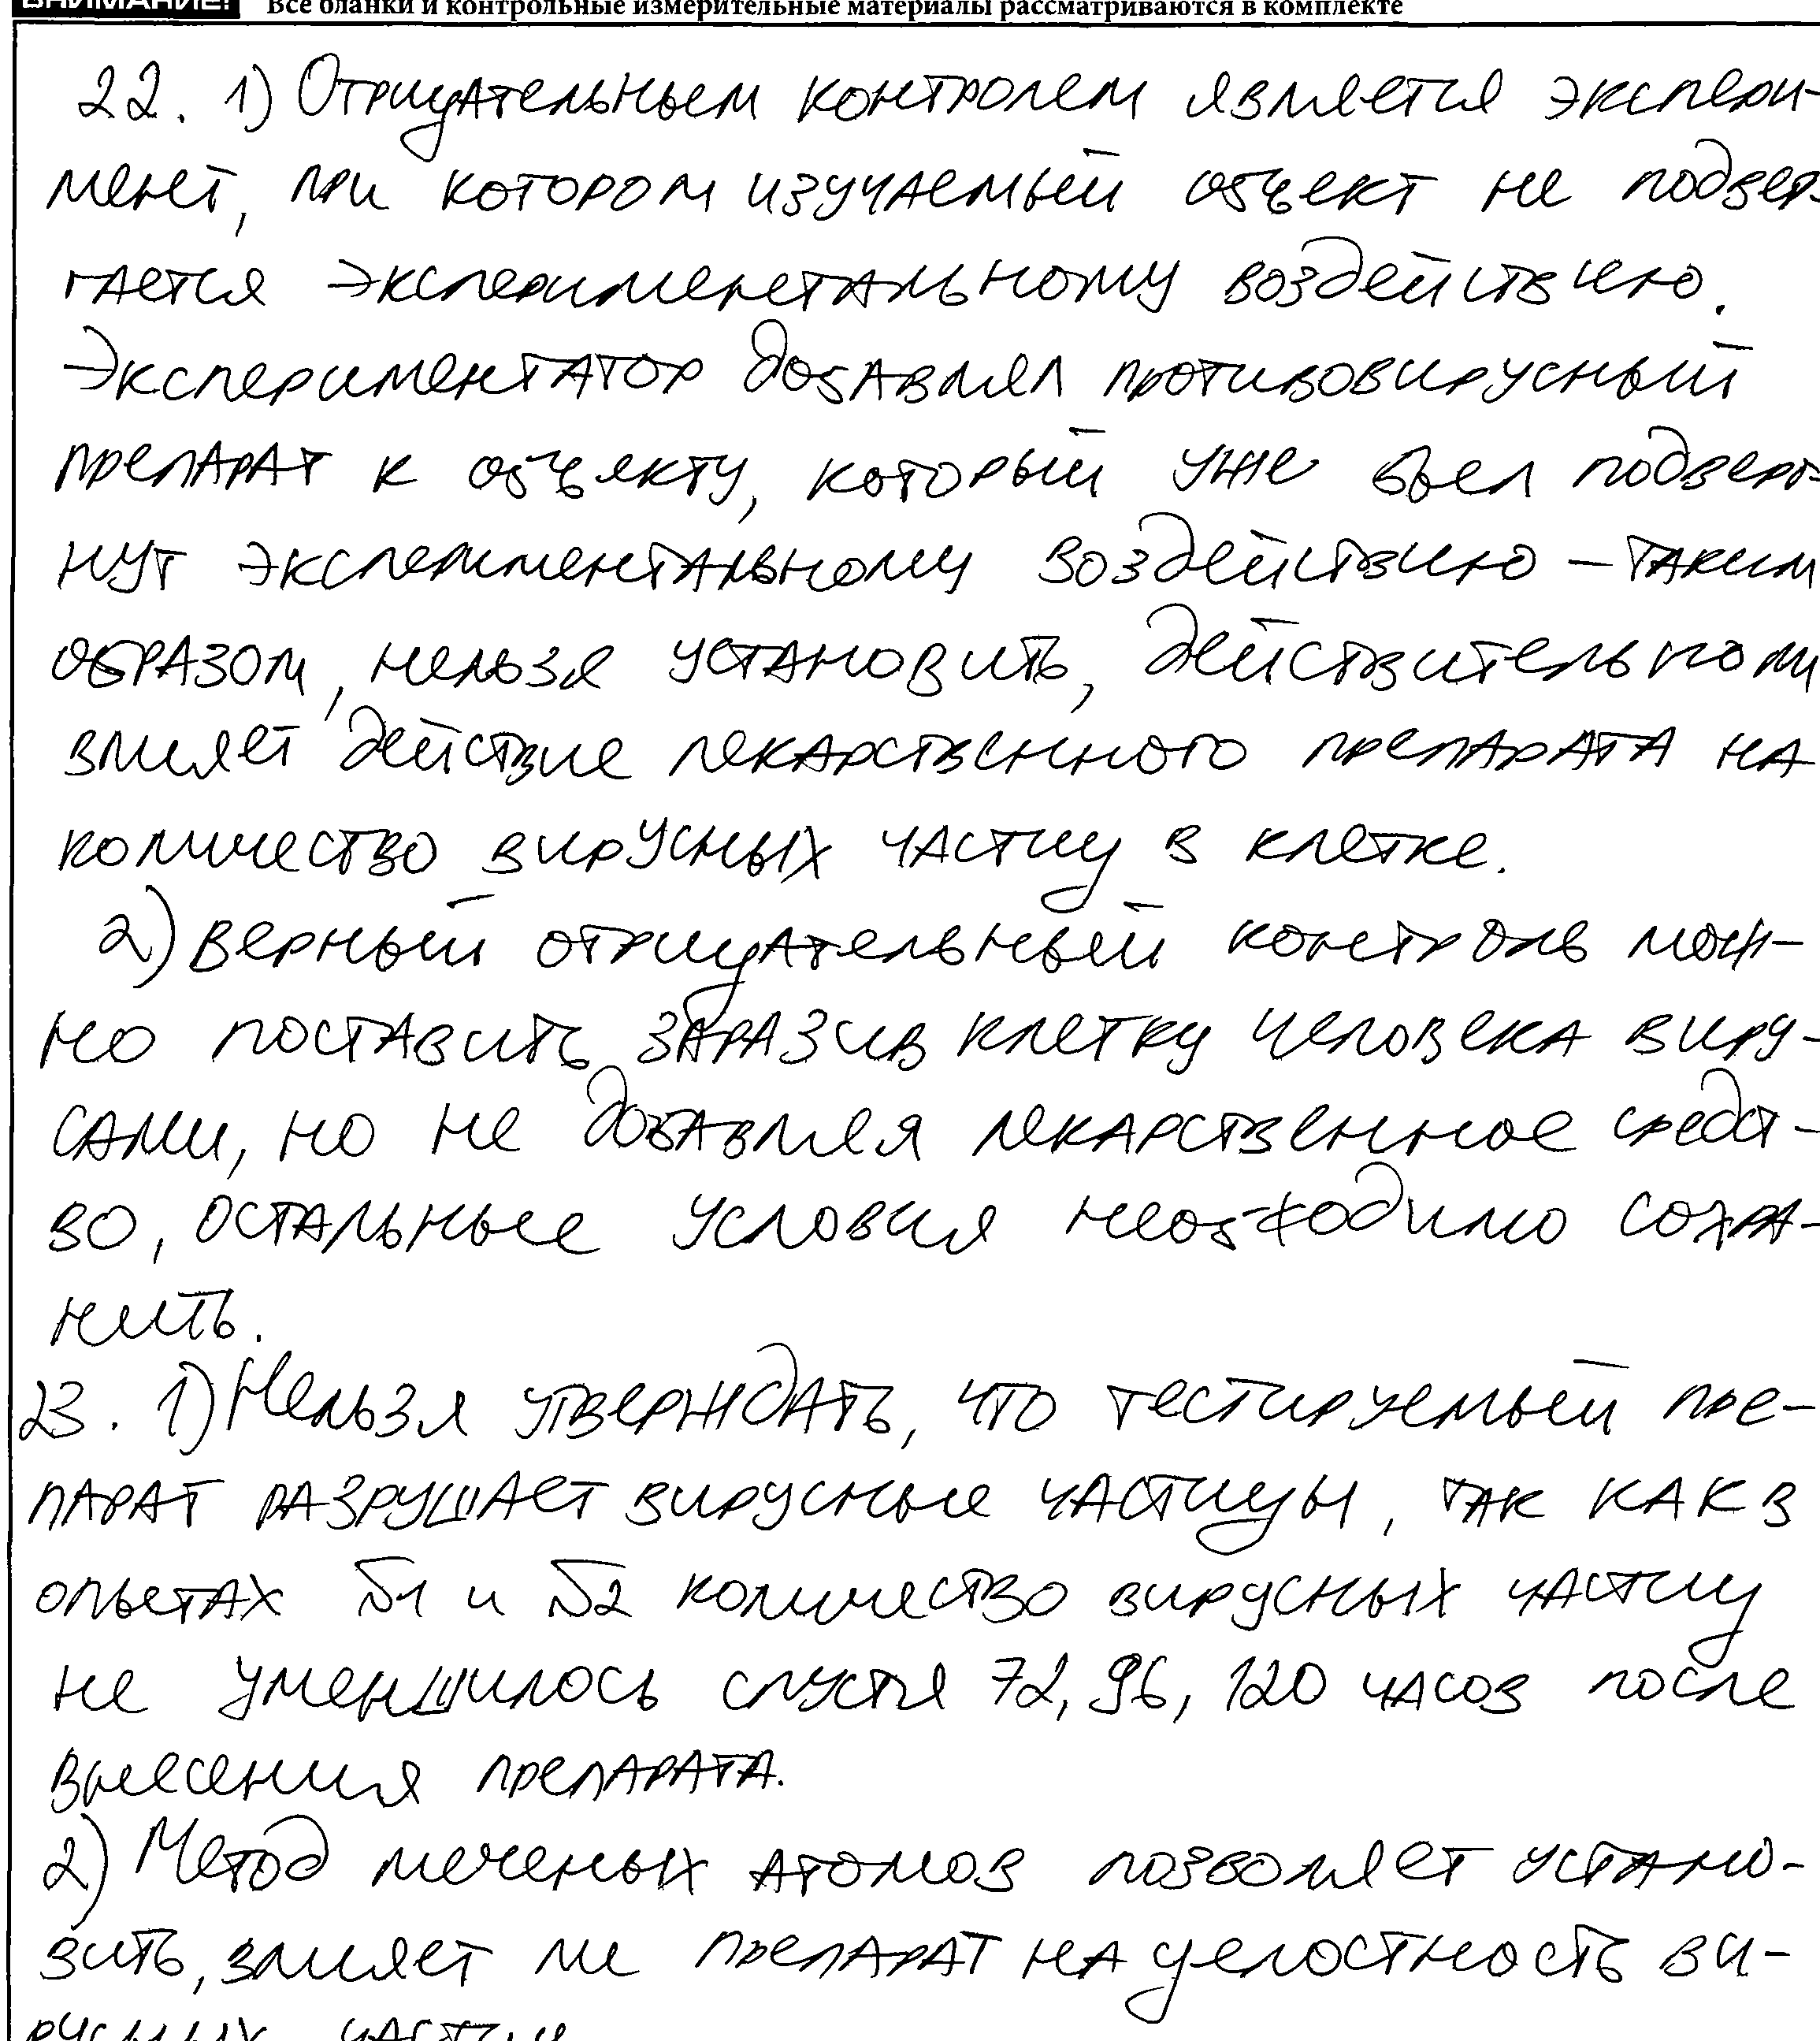 ВНИМАНИЕ! Все бланки и контрольные измерительные материалы рассматриваются в комплекте
22. 1) Отрицательным контролем является экспери-
мент, при котором изучаемый объект не подвер-
гается экспериментальному воздействию.
Экспериментатор добавлял противовирусный
препарат к объекту, который уже был подверг-
нут экспериментальному воздействию – таким
образом, нельзя установить, действительно ли
влияет действие лекарственного препарата на
количество вирусных частиц в клетке.
2) верный отрицательный контроль мож-
но поставить, заразив клетку человека виру-
сами, но не добавляя лекарственное средст-
во, остальные условия необходимо сохра-
нить.
23. 1) Нельзя утверждать, что тестируемый пре-
парат разрушает вирусные частицы, так как в
опытах №1 и №2 количество вирусных частиц
не уменшилось спустя 72, 96, 120 часов после
внесения препарата.
2) Метод меченых атомов позволяет устано-
вить, влияет ли препарат на целостность ви-
русных частиц